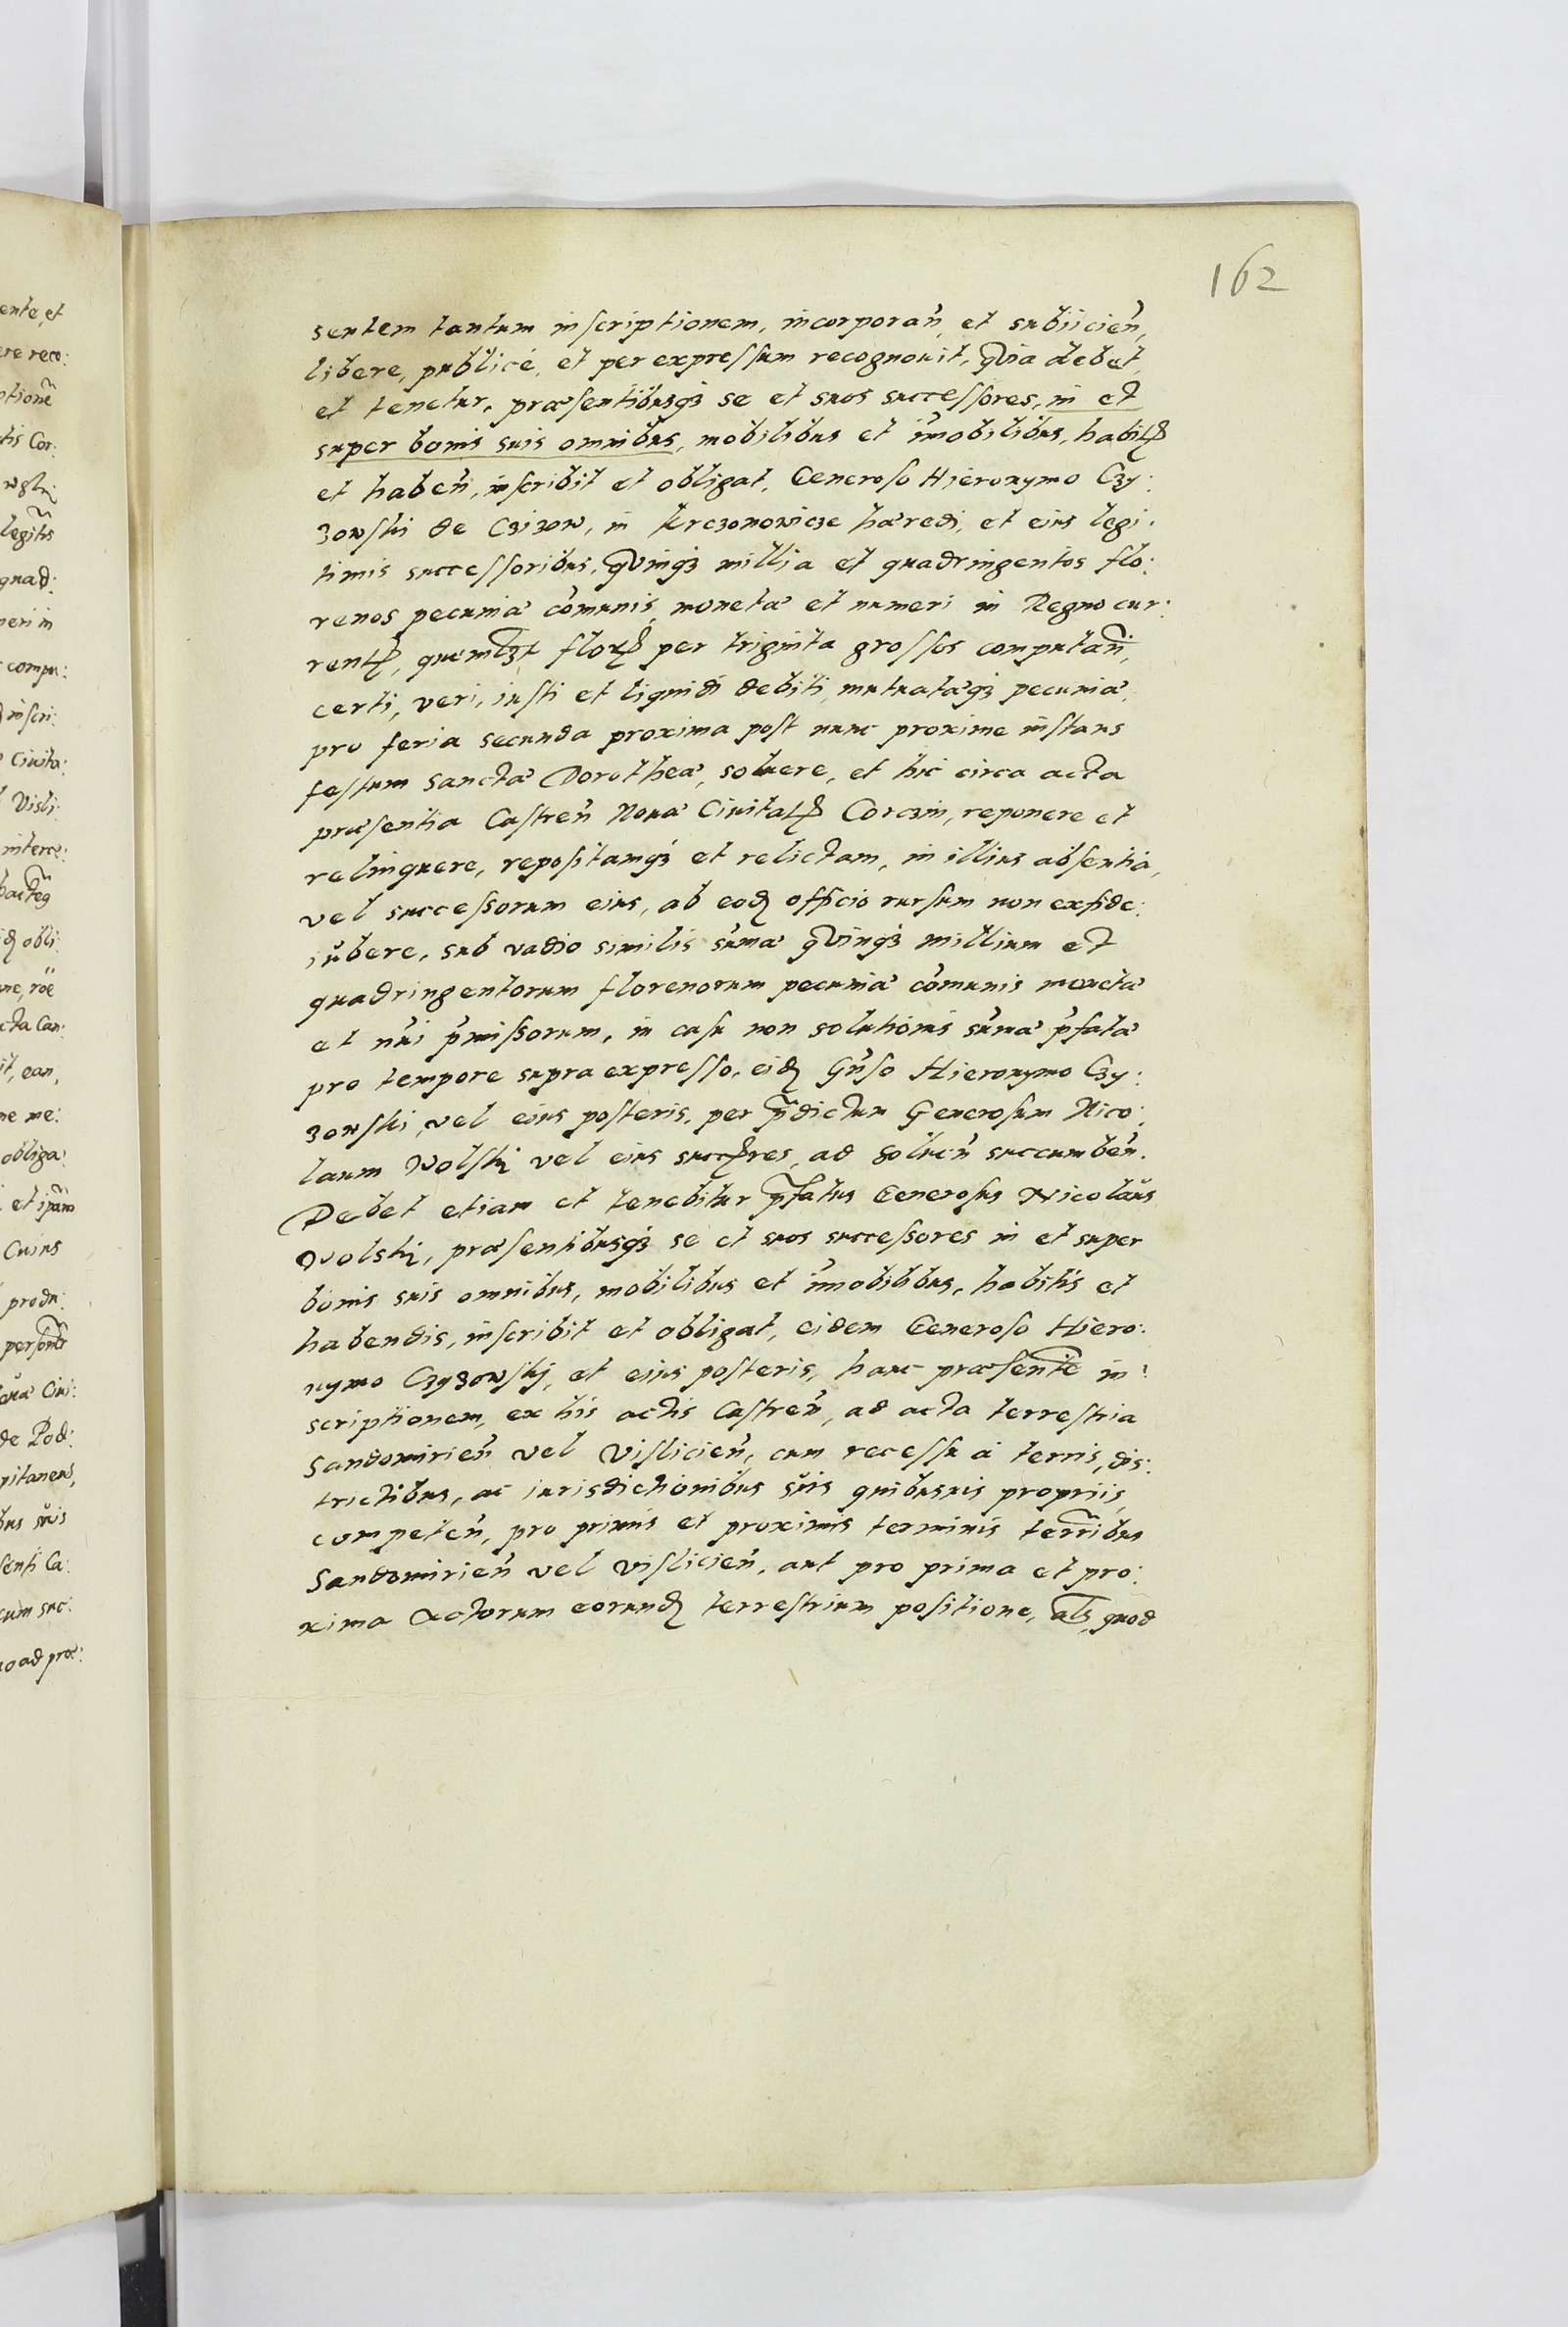 162
sentem tantum inscriptionem, incorporan̄, et subiicien̄,
libere, publicè, et per expressum recognouit, quia debet,
et tenetur, præsentibusq3 se et suos successores, in et
super bonis suis omnibus, mobilibus et im̄obilibus, habitꝭ
et haben̄, inscribit et obligat, Generoso Hieronymo Czy:
zowski de Czizow, in Krczonowicze hæredi, et eius legi:
timis successoribus, quinq3 millia et quadringentos flo:
renos pecuniæ com̄unis, monetæ et numeri in Regno cur:
rentꝭ, quemlꝫt florꝭ per triginta grossos computan̄,
certi, veri, iusti et liquidi debiti, mutuatæq3 pecuniæ,
pro feria secunda proxima post nunc proxime instans
festum Sanctæ Dorotheæ, soluere, et hic circa acta
præsentia Castren̄ Nouæ Ciuitatꝭ Corczin, reponere et
relinquere, repositamq3 et relictam, in illius absentia,
vel successorum eius, ab eodꝫ officio rursum non exfide:
iubere, sub vadio similis sum̄æ quinq3 millium et
quadringentorum florenorum pecuniæ com̄unis monetæ
et nr̄i p̄missorum, in casu non solutionis sum̄æ p̄fatæ
pro tempore supra expresso, eidꝫ Gn̄so Hieronymo Czy:
zowski, vel eius posteris, per p̄dictum Generosum Nico:
laum Wolski vel eius succꝭres, ad soluen̄ succumben̄.
Debet etiam et tenebitur p̄fatus Generosus Nicolaus
Wolski, præsentibusq3 se et suos successores in et super
bonis suis omnibus, mobilibus et im̄obilibus, habitis et
habendis, inscribit et obligat, eidem Generoso Hiero:
nymo Czyzowskj, et eius posteris, hanc præsentē in:
scriptionem, ex his actis Castren̄, ad acta terrestria
Sandomirien̄ vel Vislicien̄, cum recessu à terris, dis:
trictibus, ac iurisdictionibus suis quibusuis propriis,
competen̄, pro primis et proximis terminis terr̄ibus
Sandomirien̄ vel Vislicien̄, aut pro prima et pro:
xima Actorum eorundꝫ terrestrium positione, als, quod